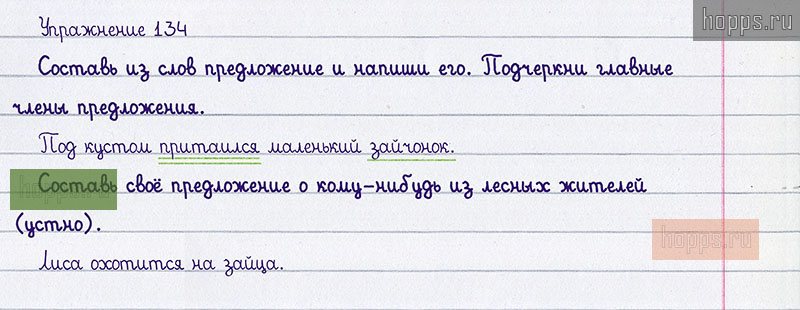 hopps.ru
Упражнение 134
Составь из слов предложение и напиши его. Подчеркни главные
члены предложения.
Под кустом притаился маленький зайчонок.
Составь своё предложение о кому-нибудь из лесных жителей
(устно).
hopps.ru
Лиса охотится на зайца.